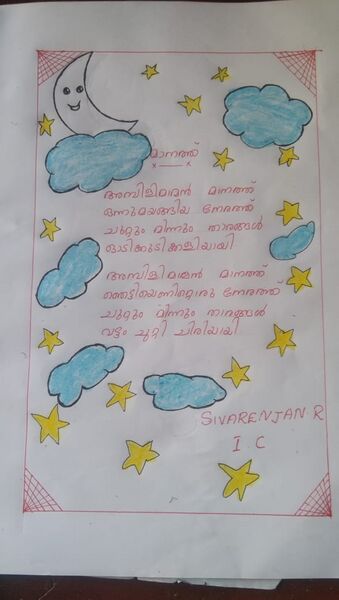 മാനത്ത്
അമ്പിളിമാമൻ മാനത്ത്
ഒന്നുമയങ്ങിയ നേരത്ത്
ചുറ്റും മിന്നും താരങ്ങൾ
ഓടിക്കൂടിക്കളിയായി
അമ്പിളിമാമൻ മാനത്ത്
ഞെട്ടിയെണിറ്റൊരു നേരത്ത്
ചുറ്റും മിന്നും താരങ്ങൾ
വട്ടം ചുറ്റി ചിരിയായി
SIVARENJAN.R
I C